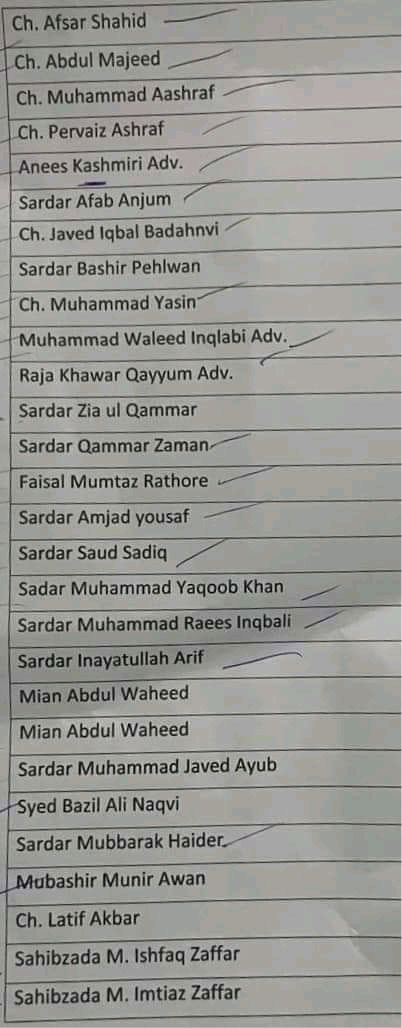 Ch. Afsar Shahid
Ch. Abdul Majeed
Ch. Muhammad Aashraf
Ch. Pervaiz Ashraf
Anees Kashmiri Adv.
Sardar Afab Anjum
Ch. Javed Iqbal Badahnvi
Sardar Bashir Pehlwan
Ch. Muhammad Yasin
Muhammad Waleed Inqlabi Adv.
Raja Khawar Qayyum Adv.
Sardar Zia ul Qammar
Sardar Qammar Zaman
Faisal Mumtaz Rathore
Sardar Amjad yousaf
Sardar Saud Sadiq
Sadar Muhammad Yaqoob Khan
Sardar Muhammad Raees Inqbali
Sardar Inayatullah Arif
Mian Abdul Waheed
Mian Abdul Waheed
Sardar Muhammad Javed Ayub
Syed Bazil Ali Naqvi
Sardar Mubbarak Haider
Mubashir Munir Awan
Ch. Latif Akbar
Sahibzada M. Ishfaq Zaffar
Sahibzada M. Imtiaz Zaffar